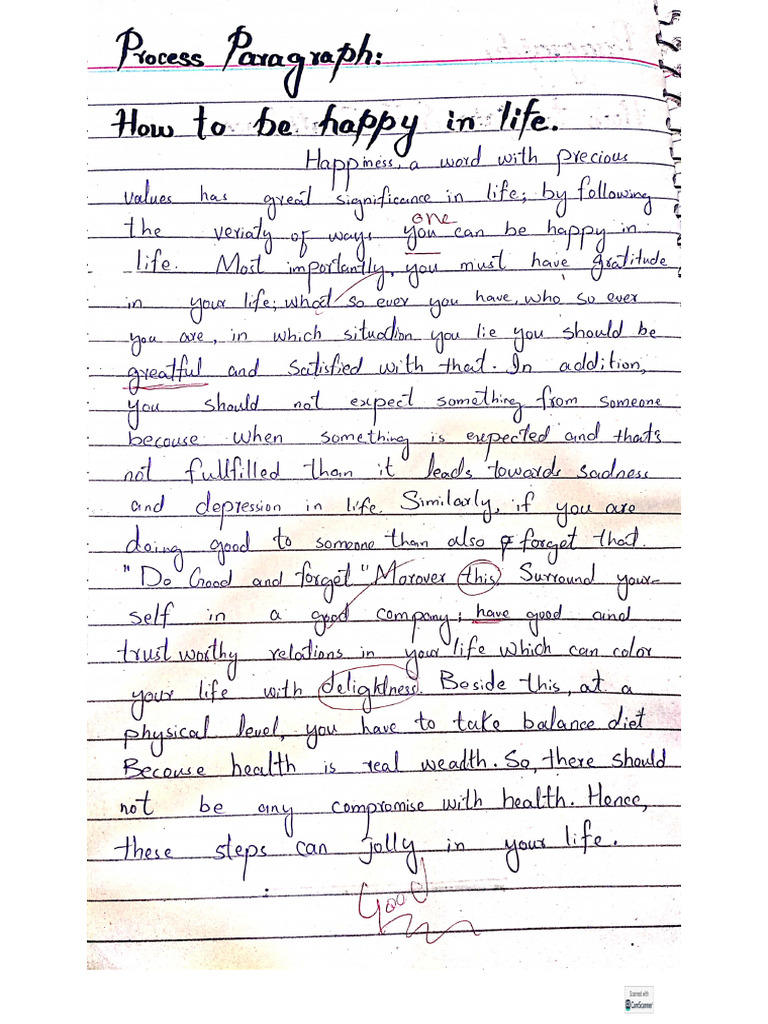 Process Paragraph:
How to be happy in life.
Happiness, a word with precious
values has great significance in life; by following
one
the veriaty of ways you can be happy in
life. Most importantly, you must have gratitude
in your life; what so ever you have, who so ever
you are, in which situation you lie you should be
greatful and satisfied with that. In addition,
you should not expect something from someone
becouse when something is expected and that's
not fullfilled than it leads towards sadness
and depression in life. Similarly, if you are
doing good to someone than also forget that.
"Do Good and forget" Morover this Surround your-
self in a good company; have good and
trust worthy relations in your life which can color
your life with delightness. Beside this, at a
physical level, you have to take balance diet
Becouse health is real wealth. So, there should
not be any compromise with health. Hence,
these steps can jolly in your life.
Good
Scanned with
CamScanner